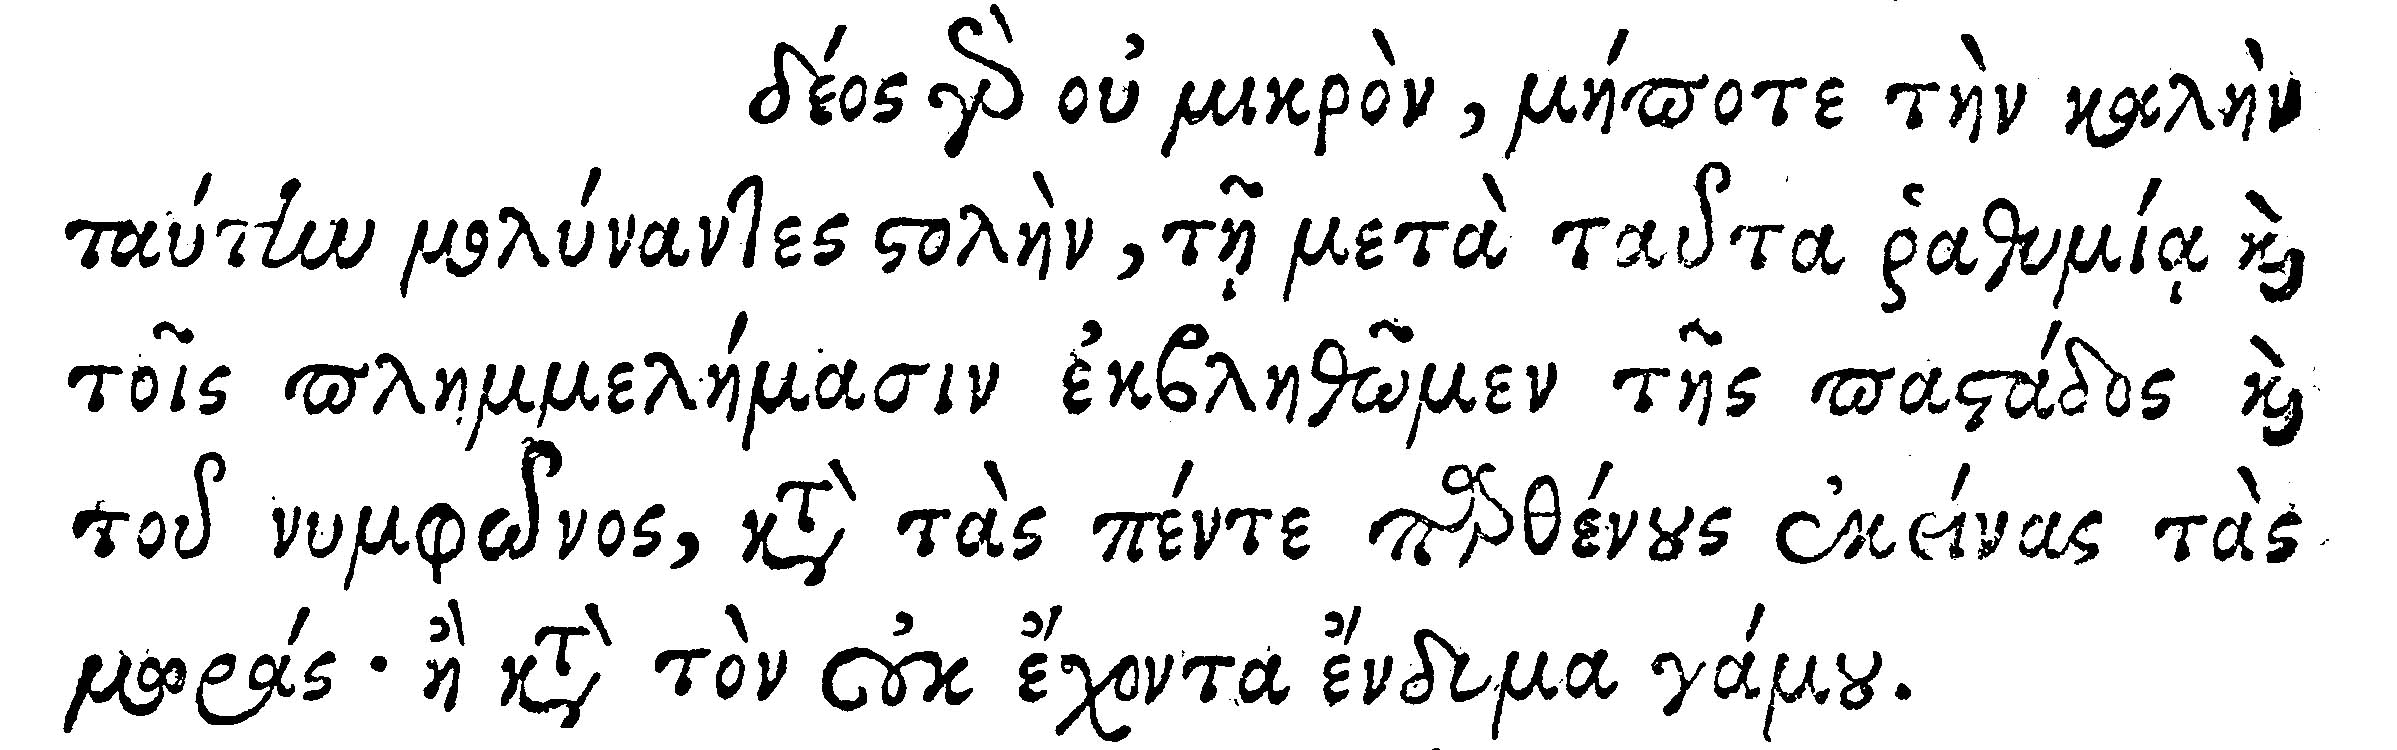 δέος γὰρ οὐ μικρὸν, μήποτε τὴν καλὴν
ταύτην μολύναντες στολὴν, τῇ μετὰ ταῦτα ῥαθυμίᾳ καὶ
τοῖς πλημμελήμασιν ἐκβληθῶμεν τῆς παστάδος καὶ
τοῦ νυμφῶνος, κατὰ τὰς πέντε παρθένους ἐκείνας τὰς
μωράς· ἢ κατὰ τὸν οὐκ ἔχοντα ἔνδυμα γάμου.